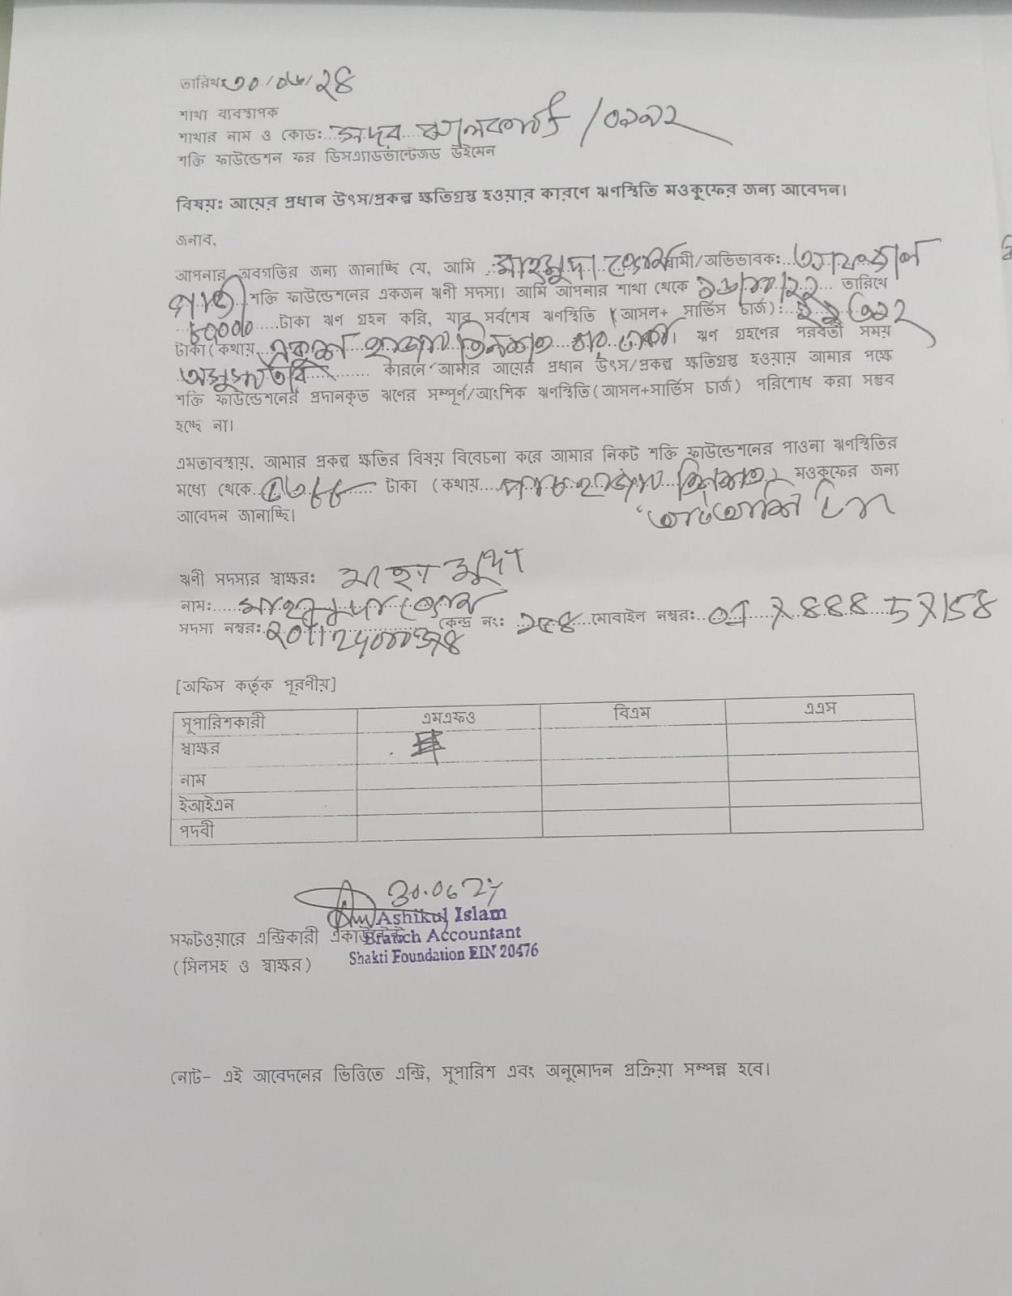 তারিখঃ ৩০/০৬/২৪
শাখা ব্যবস্থাপক
শাখার নাম ও কোড: সদর /০২২২
শক্তি ফাউন্ডেশন ফর ডিসএ্যাডভান্টেজড উইমেন
বিষয়: আয়ের প্রধান উৎস/প্রকল্প ক্ষতিগ্রস্থ হওয়ার কারণে ঋণস্থিতি মওকুফের জন্য আবেদন।
জনাব,
আপনার অবগতির জন্য জানাচ্ছি যে, আমি মাহমুদা বেগম স্বামী/অভিভাবক:
শক্তি ফাউন্ডেশনের একজন ঋনী সদস্য। আমি আপনার শাখা থেকে তারিখে
টাকা ঋণ গ্রহন করি, যার সর্বশেষ ঋণস্থিতি (আসল+ সার্ভিস চার্জ):
টাকা (কথায় একুশ হাজার তিনশত টাকা। ঋণ গ্রহণের পরবর্তী সময়
কারনে আমার আয়ের প্রধান উৎস/প্রকল্প ক্ষতিগ্রস্থ হওয়ায় আমার পক্ষে
শক্তি ফাউন্ডেশনের প্রদানকৃত ঋণের সম্পূর্ণ/আংশিক ঋণস্থিতি(আসল+সার্ভিস চার্জ) পরিশোধ করা সম্ভব
হচ্ছে না।
এমতাবস্থায়, আমার প্রকল্প ক্ষতির বিষয় বিবেচনা করে আমার নিকট শক্তি ফাউন্ডেশনের পাওনা ঋণস্থিতির
মধ্যে থেকে ৫৩৮৮ টাকা (কথায় পাচ হাজার তিনশত) মওকুফের জন্য
আবেদন জানাচ্ছি।
ঋনী সদস্যর স্বাক্ষর: মাহমুদা
নাম: মাহমুদা বেগম
সদস্য নম্বর: কেন্দ্র নং: মোবাইল নম্বর:
[অফিস কর্তৃক পূরণীয়]
সুপারিশকারী এমএফও বিএম এএস
স্বাক্ষর
নাম
ইআইএন
পদবী
30.06.24
Ashikul Islam
সফটওয়ারে এন্ট্রিকারী Branch Accountant
(সিলসহ ও স্বাক্ষর) Shakti Foundation EIN 20476
নোট- এই আবেদনের ভিত্তিতে এন্ট্রি, সুপারিশ এবং অনুমোদন প্রক্রিয়া সম্পন্ন হবে।